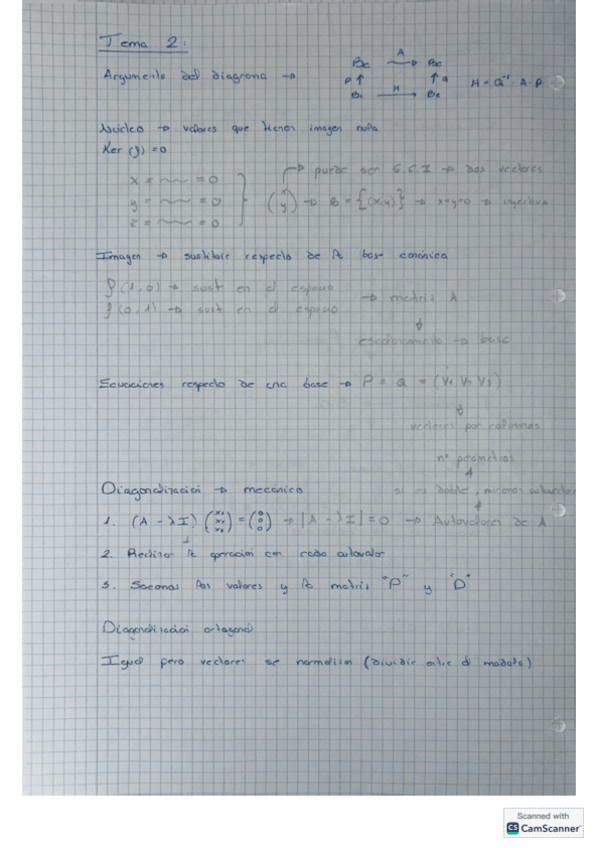 Tema 2:
Bc A Bc
Argumento del diagrama → P ↑ ↑ Q H = Q⁻¹ · A · P
B₁ H B₂
Núcleo → valores que tienen imagen nula
Ker (f) = 0
puede ser S.C.I → dos vectores
x = ~~ = 0
y = ~~ = 0 (x y) → B = {(x,y)} → x=y=0 → inyectiva
z = ~~ = 0
Imagen → sustituir respecto de la base canónica
f (1,0) → sust en el espacio
f (0,1) → sust en el espacio → matriz A
escalonamiento → base
Ecuaciones respecto de una base → P = Q = (V₁ V₂ V₃)
vectores por columnas
nº parámetros
Diagonalización → mecánica si es doble, mismos
1. (A - λI) (x₁ x₂ x₃) = (0 0 0) → |A - λI| = 0 → Autovalores de A
2. Realizar la operación con cada autovalor
3. Sacamos los valores y la matriz "P" y "D"
Diagonalización ortogonal
Igual pero vectores se normalizan (dividir entre el módulo)
Scanned with
CS CamScanner